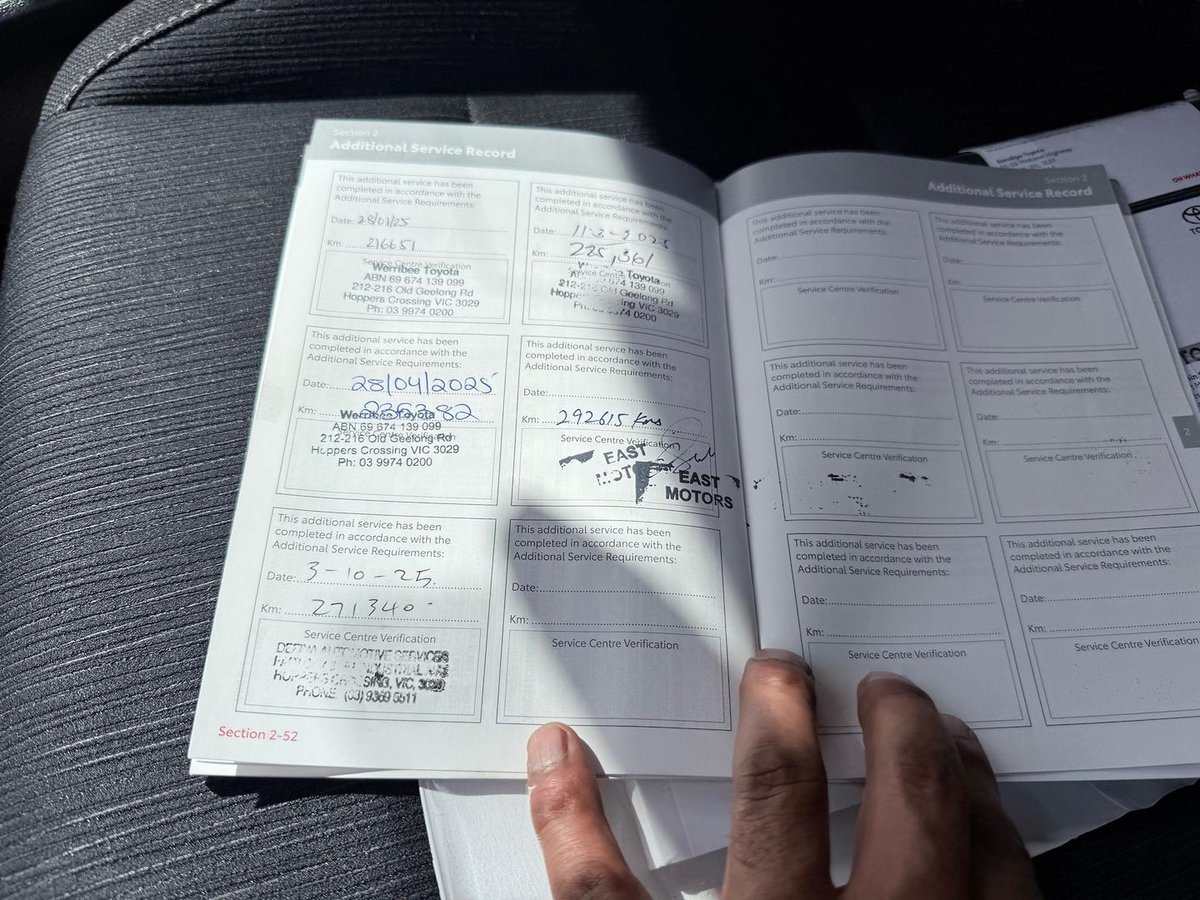 Section 2
Additional Service Record
This additional service has been
completed in accordance with the
Additional Service Requirements:
Date: 28/01/25
Km: 216651
Service Centre Verification
Werribee Toyota
ABN 69 674 139 099
212-216 Old Geelong Rd
Hoppers Crossing VIC 3029
Ph: 03 9974 0200
This additional service has been
completed in accordance with the
Additional Service Requirements:
Date: 11-2-2025
Km: 225,361
Service Centre Verification
Toyota
674 139 099
212-216 Old Geelong Rd
Hoppers Crossing VIC 3029
Ph: 03 9974 0200
This additional service has been
completed in accordance with the
Additional Service Requirements:
Date: 28/04/2025
Km:
Werribee Toyota
ABN 69 674 139 099
Service Centre Verification
212-216 Old Geelong Rd
Hoppers Crossing VIC 3029
Ph: 03 9974 0200
This additional service has been
completed in accordance with the
Additional Service Requirements:
Date:
Km: 292615 Kms
Service Centre Verification
EAST
EAST
MOTORS
This additional service has been
completed in accordance with the
Additional Service Requirements:
Date: 3-10-25
Km: 271340
Service Centre Verification
AUTOMOTIVE SERVICES
VIC, 3029
PHONE (03) 9369 5511
This additional service has been
completed in accordance with the
Additional Service Requirements:
Date:
Km:
Service Centre Verification
Section 2-52
Section 2
Additional Service Record
This additional service has been
completed in accordance with the
Additional Service Requirements:
Date:
Km:
Service Centre Verification
This additional service has been
completed in accordance with the
Additional Service Requirements:
Date:
Km:
Service Centre Verification
This additional service has been
completed in accordance with the
Additional Service Requirements:
Date:
Km:
Service Centre Verification
This additional service has been
completed in accordance with the
Additional Service Requirements:
Date:
Km:
Service Centre Verification
This additional service has been
completed in accordance with the
Additional Service Requirements:
Date:
Km:
Service Centre Verification
This additional service has been
completed in accordance with the
Additional Service Requirements:
Date:
Km:
Service Centre Verification
2